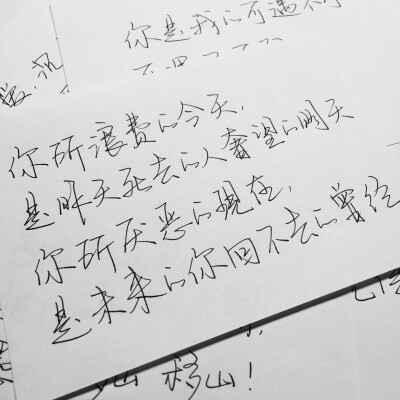 你是我的可遇不可
你所浪费的今天，
是昨天死去的人奢望的明天
你所厌恶的现在，
是未来的你回不去的曾经
移山！